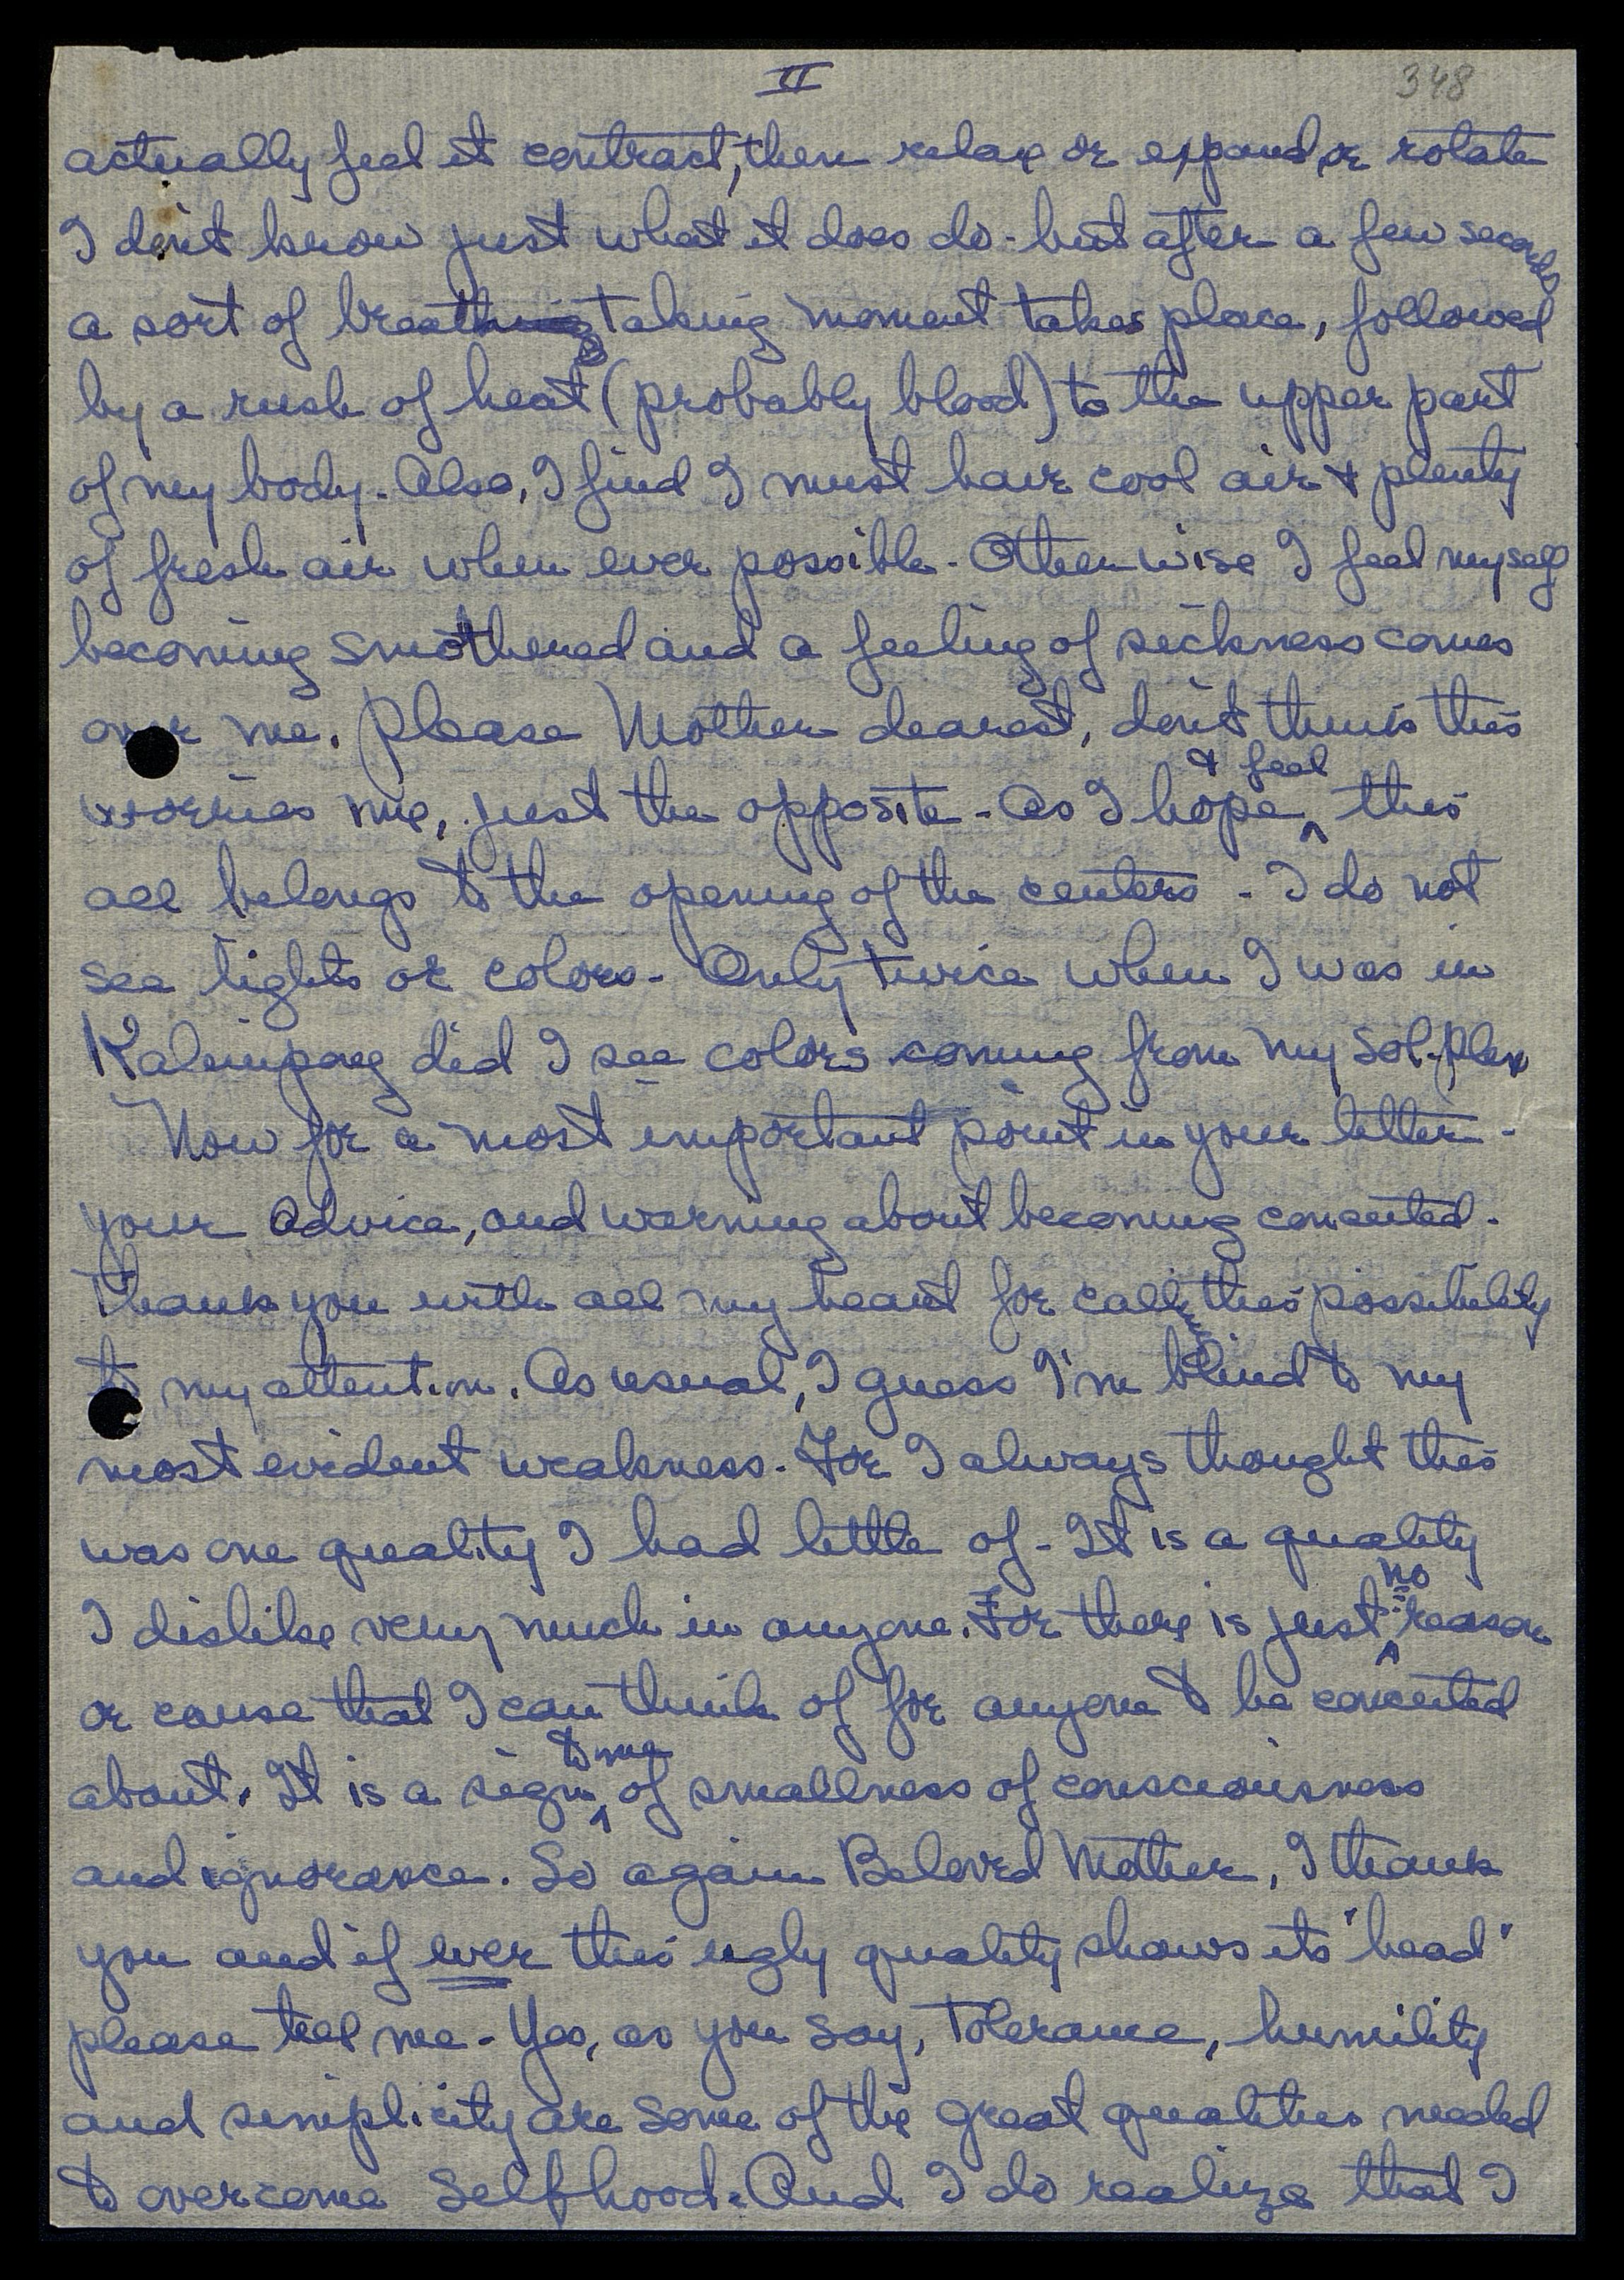 II
348
actually feel it contract, then relax or expand or rotate
I don't know just what it does do - but after a few seconds
a sort of breath taking moment takes place, followed
by a rush of heat (probably blood) to the upper part
of my body. Also, I find I must have cool air & plenty
of fresh air when ever possible. Otherwise I feel myself
becoming smothered and a feeling of sickness comes
over me. Please Mother dearest, don't think this
worries me, just the opposite - As I hope & feel this
all belongs to the opening of the centers - I do not
see lights or colors - Only twice when I was in
Kalimpong did I see colors coming from my Sol. Plex
Now for a most important point in your letter -
your advice, and warning about becoming conceited.
Thank you with all my heart for calling this possibility
to my attention. As usual, I guess I'm blind to my
most evident weakness. For I always thought this
was one quality I had little of - It is a quality
I dislike very much in anyone. For there is just no reason
or cause that I can think of for anyone to be conceited
about. It is a sign to me of smallness of consciousness
and ignorance. So again Beloved Mother, I thank
you and if ever this ugly quality shows its "head"
please tell me - Yes, as you say, Tolerance, humility
and simplicity are some of the great qualities needed
to overcome Selfhood. And I do realize that I